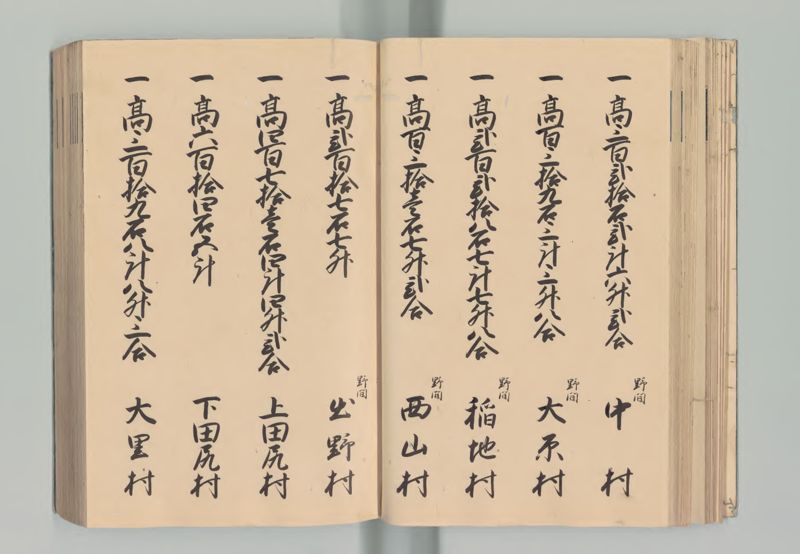 一 高三百弐拾石弐斗六升弐合 野間 中村
一 高百三拾九石三斗三升八合 野間 大原村
一 高弐百弐拾八石七斗七升八合 野間 稲地村
一 高百三拾壱石七升弐合 野間 西山村
一 高弐百拾七石七升 野間 出野村
一 高四百七拾壱石四斗四升弐合 上田尻村
一 高六百拾四石六斗 下田尻村
一 高三百拾九石八斗八升三合 大里村